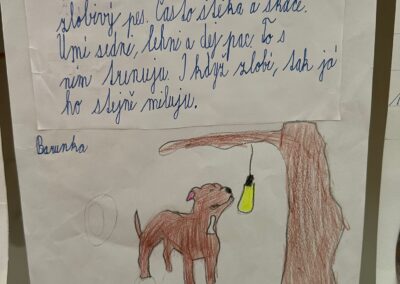 zlobivý pes. Často štěká a skáče.
Umí sedni, lehni a dej pac. To s
ním trenuju. I když zlobí, tak já
ho stejně miluju.
Barunka